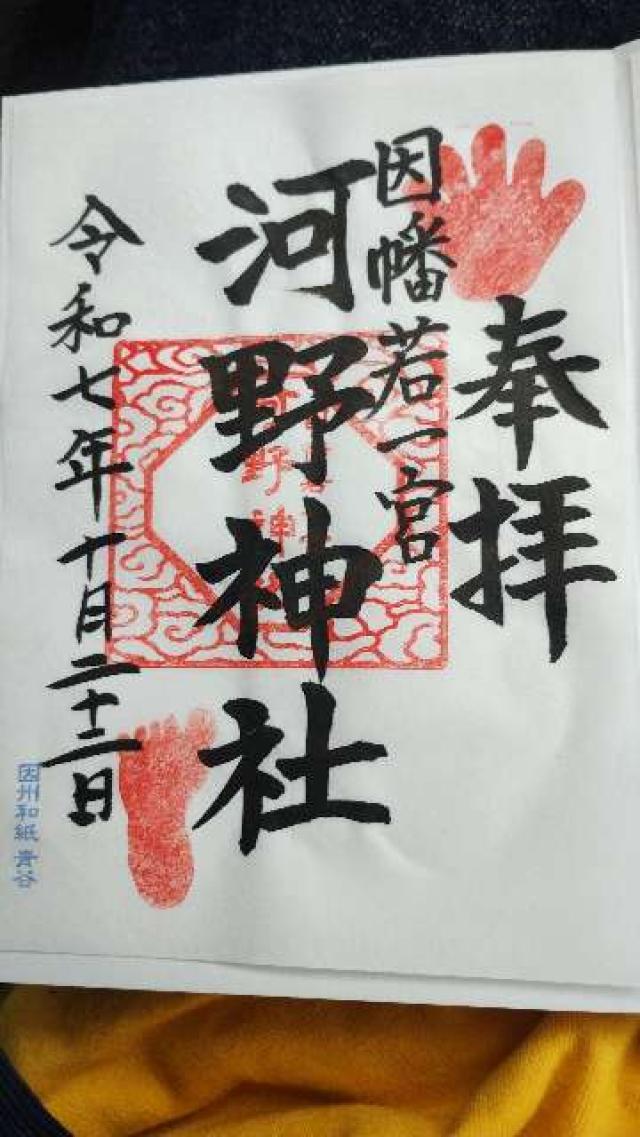 奉拝
因幡若一宮
河野神社
令和七年十月二十二日
因州和紙 青谷